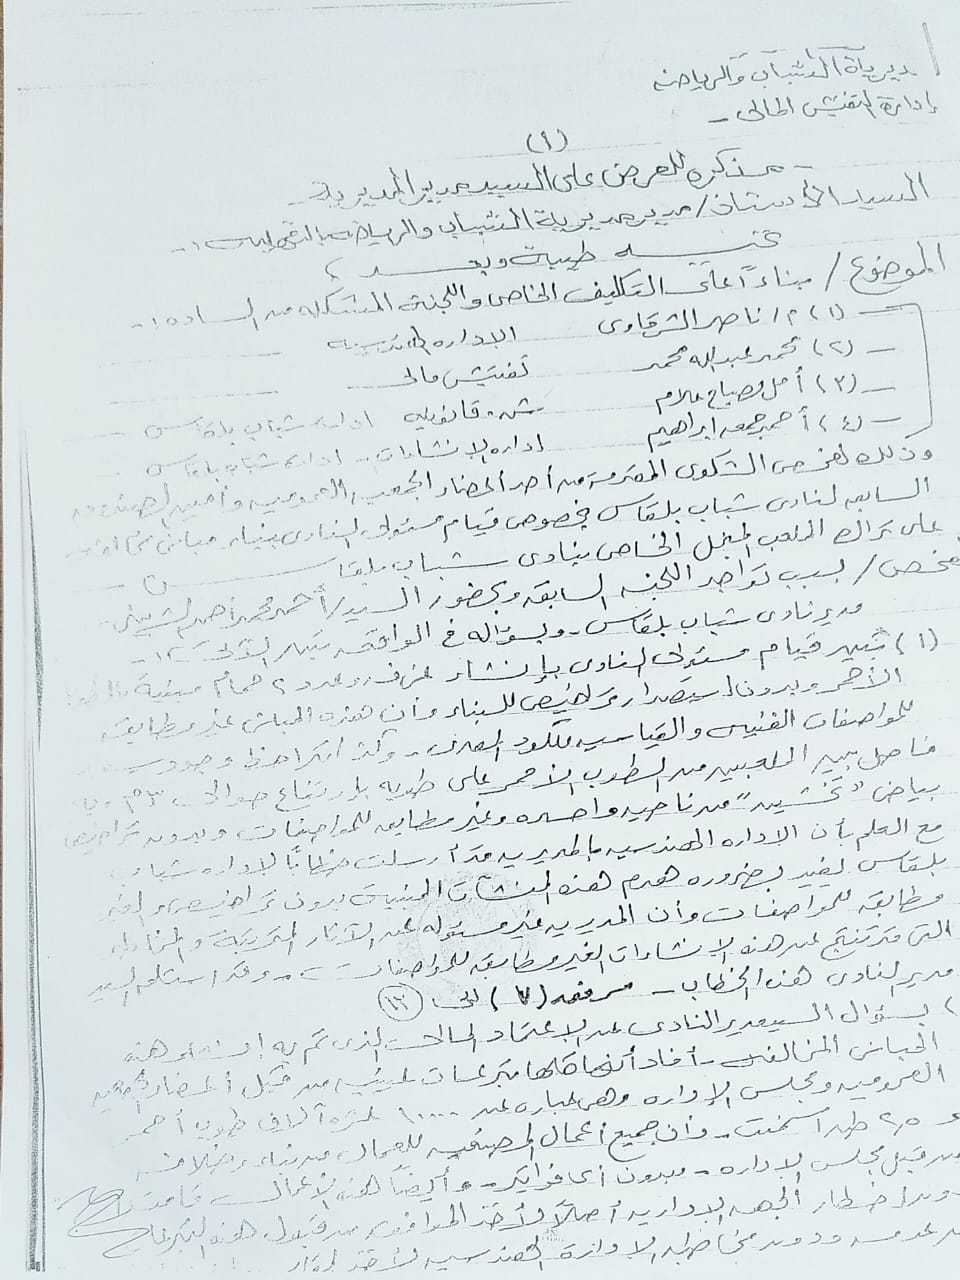 مديرية الشباب والرياضة
إدارة التفتيش المالى -
(١)
- مذكرة للعرض على السيد مدير المديرية -
السيد الأستاذ / مدير مديرية الشباب والرياضة بالدقهلية :-
تحية طيبة وبعد ،
الموضوع / بناءاً على التكليف الخاص واللجنة المشكلة من السادة :-
- (١) م / ناصر الشرقاوى الإدارة الهندسية
- (٢) محمد عبد الله محمد تفتيش مالى
- (٣) أمل مصباح علام ش. قانونية إدارة شباب بلقاس
- (٤) أحمد جمعه إبراهيم إدارة الإنشاءات - إدارة شباب بلقاس
وذلك لفحص الشكوى المقدمة من أحد أعضاء الجمعية العمومية وأمين الصندوق
السابق لنادى شباب بلقاس بخصوص قيام مسئولى النادى ببناء مبانى مخالفة
على تراك الملعب المنجل الخاص بنادى شباب بلقاس
الفحص / بسبب تواجد اللجنة السابقة وبحضور السيد / أحمد محمد أحمد الشربينى
مدير نادى شباب بلقاس - وبسؤاله فى الواقعة تبين الآتى :-
(١) تبين قيام مسئولى النادى بإنشاء غرف وعدد ٢ حمام مبنية بالطوب
الأحمر وبدون استصدار ترخيص للبناء وأن هذه المبانى غير مطابقة
للمواصفات الفنية والقياسية للكود المصرى - وكذا ملاحظ وجود
فاصل بين الملعبين من الطوب الأحمر على طوبه بارتفاع حوالى ٣ م
بياض "تخشين" من ناحية واحدة وغير مطابقة للمواصفات وبدون تراخيص
مع العلم بأن الإدارة الهندسية بالمديرية قد أرسلت خطاباً لإدارة شباب
بلقاس يفيد بضرورة هدم هذه المنشآت المبنية بدون تراخيص والغير
مطابقة للمواصفات وأن المديرية غير مسئولة عن الآثار المترتبة و
التى قد تنتج عن هذه الإنشاءات الغير مطابقة للمواصفات - وقد استلم السيد
مدير النادى هذا الخطاب - مرفق (٧) لـ (١٢)
٢) بسؤال السيد مدير النادى عن الإعتماد المالى الذى تم به إنشاء هذه
المبانى المخالفة - أفاد أنها كلها تبرعات عينية من قبل أعضاء الجمعية
العمومية ومجلس الإدارة وهى عبارة عن ١٠٠٠٠ عشرة آلاف طوب أحمر
و ٢,٥ طن أسمنت - وأن جميع أعمال المصنعية للعمال من بناء وخلافه
من قبل مجلس الإدارة - وبدون أى فواتير - وأيضاً هذه الأعمال قامت
وبدون إخطار الجهة الإدارية أصلاً لأخذ الموافقة من قبول هذه التبرعات
من عدمه ودون مخاطبة الإدارة الهندسية لأخذ